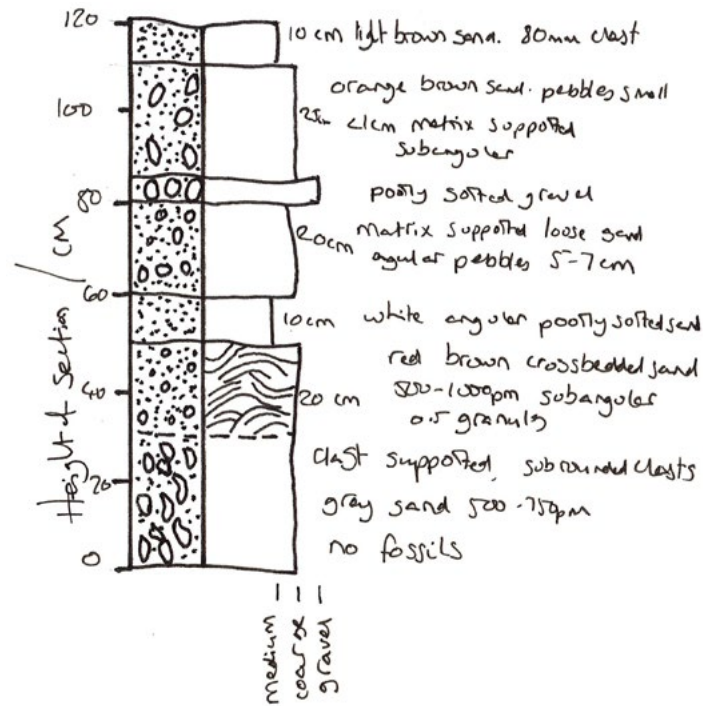 120
10 cm light brown sand. 80mm clast
orange brown sand. pebbles small
100
25cm <1cm matrix supported
subangular
poorly sorted gravel
80
matrix supported loose sand
20cm agular pebbles 5-7cm
60
10cm white angular poorly sorted sand
red brown crossbedded sand
40
20 cm 500-1000µm subangular
0.5 granuls
clast supported, subrounded clasts
20
gray sand 500-750µm
no fossils
0
Height of section / cm
medium
coarse
gravel